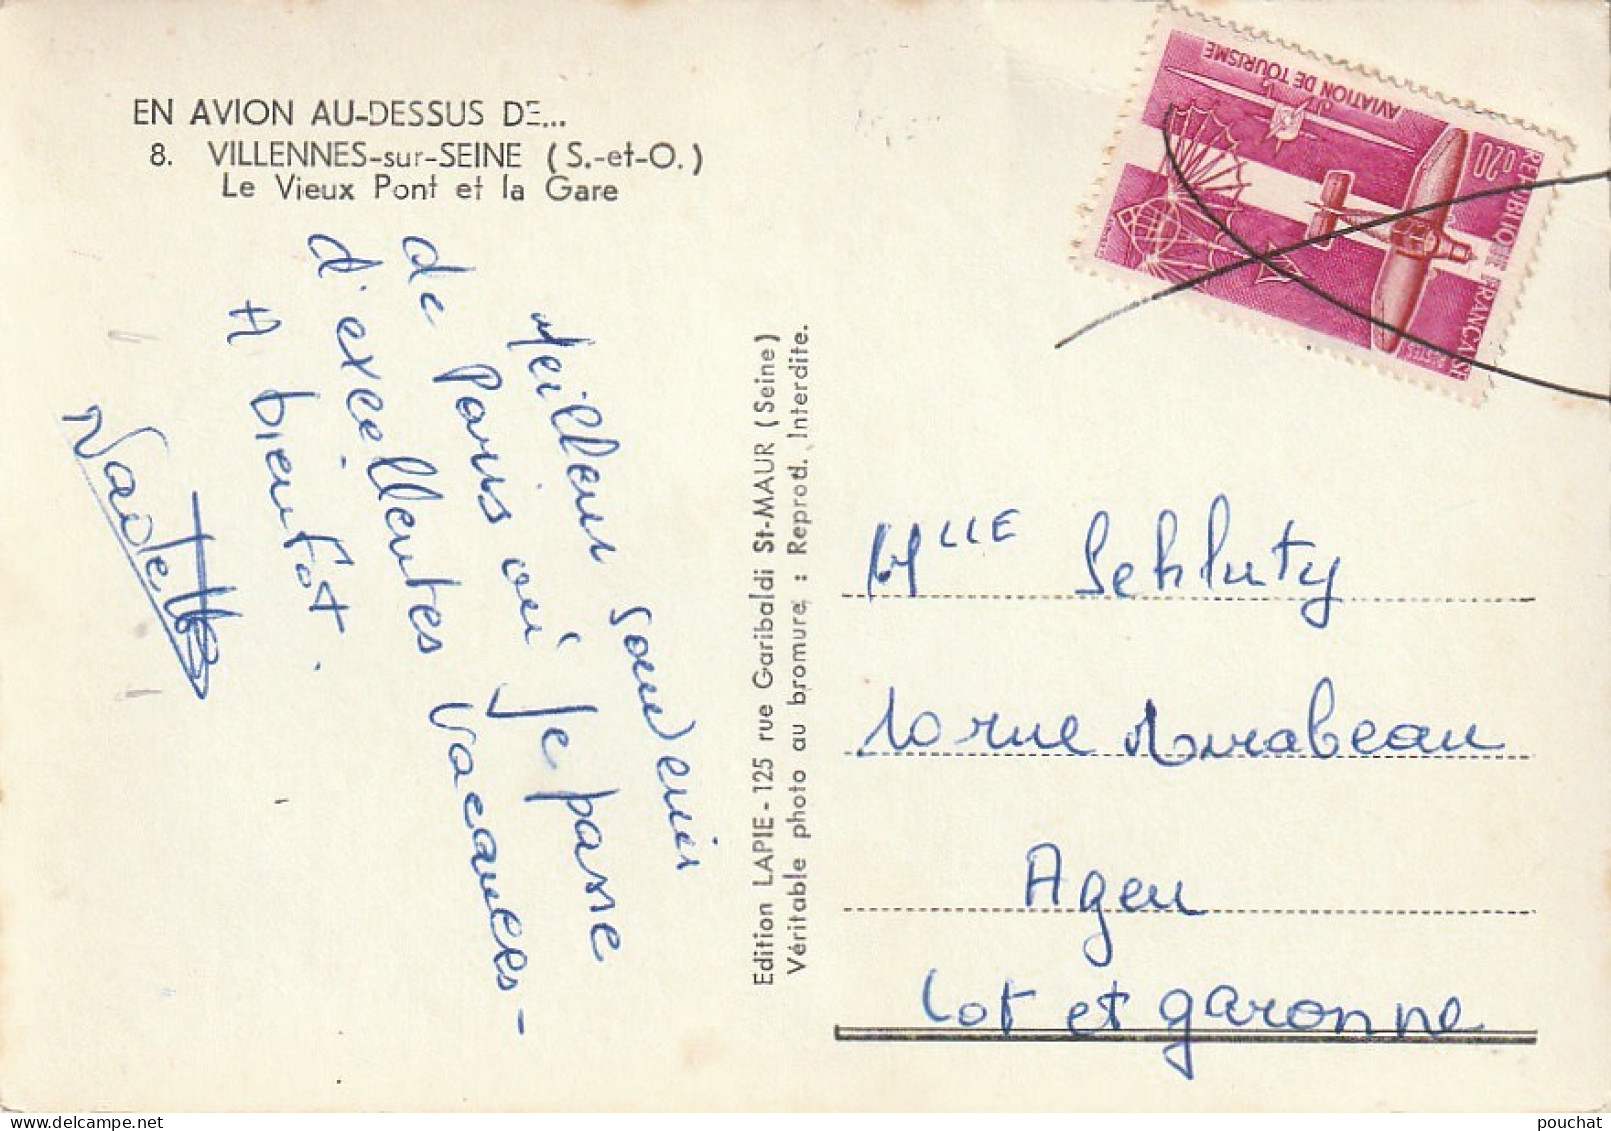 EN AVION AU-DESSUS DE...
8. VILLENNES-sur-SEINE (S.-et-O.)
Le Vieux Pont et la Gare
Meilleur souvenir
de Paris où je passe
d'excellentes vacances-
A bientôt.
Edition LAPIE - 125 rue Garibaldi St-MAUR (Seine)
Véritable photo au bromure : Reprod. Interdite.
AVIATION DE TOURISME
0,20
REPUBLIQUE FRANÇAISE
POSTES
Mlle Schluty
10 rue Mirabeau
Agen
Lot et garonne
pouchat